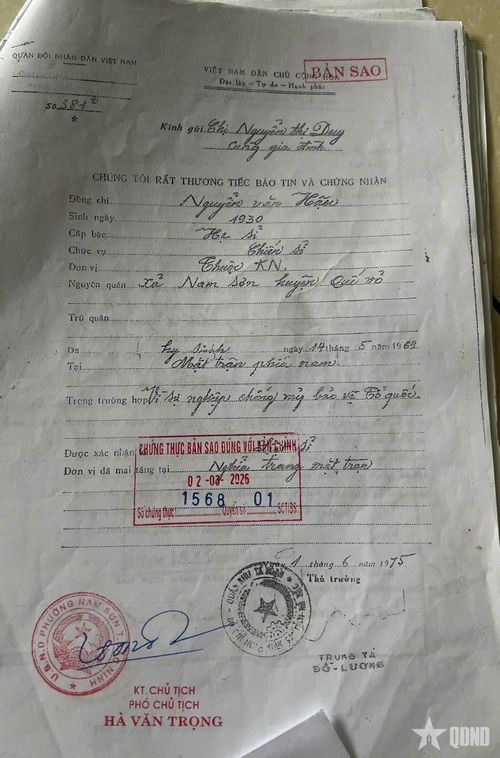 QUÂN ĐỘI NHÂN DÂN VIỆT NAM
Số 381
VIỆT NAM DÂN CHỦ CỘNG HÒA
Độc lập - Tự do - Hạnh phúc
BẢN SAO
Kính gửi Chị Nguyễn Thị Duy
cùng gia đình
CHÚNG TÔI RẤT THƯƠNG TIẾC BÁO TIN VÀ CHỨNG NHẬN
Đồng chí Nguyễn văn Hậu
Sinh ngày 1930
Cấp bậc Hạ sĩ
Chức vụ Chiến sĩ
Đơn vị Thuộc KN.
Nguyên quán xã Nam Sơn huyện Quế võ
Trú quán
Đã hy sinh ngày 14 tháng 5 năm 1969
Tại Mặt trận phía nam.
Trong trường hợp Vì sự nghiệp chống mỹ bảo vệ Tổ quốc.
Được xác nhận là sĩ
Đơn vị đã mai táng tại Nghĩa trang mặt trận
CHỨNG THỰC BẢN SAO ĐÚNG VỚI BẢN CHÍNH
02-03-2026
Số chứng thực 1568 Quyển số 01 SCT/BS
Ngày 1 tháng 6 năm 1975
Thủ trưởng
TRUNG TÁ
ĐỖ-LƯƠNG
U.B.N.D PHƯỜNG NAM SƠN
KT.CHỦ TỊCH
PHÓ CHỦ TỊCH
HÀ VĂN TRỌNG
QĐND